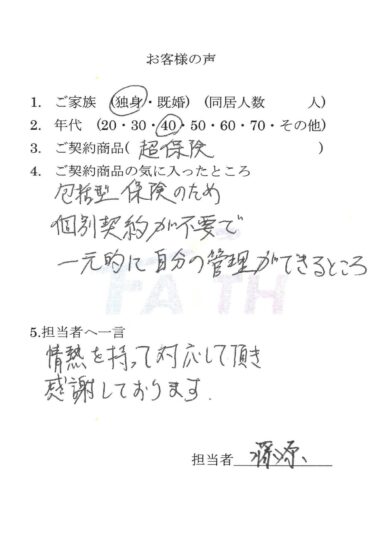 お客様の声
1. ご家族 (独身・既婚) (同居人数 人)
2. 年代 (20・30・40・50・60・70・その他)
3. ご契約商品( 超保険 )
4. ご契約商品の気に入ったところ
包括型保険のため
個別契約が不要で
一元的に自分の管理ができるところ
FAITH
5.担当者へ一言
情熱を持って対応して頂き
感謝しております.
担当者